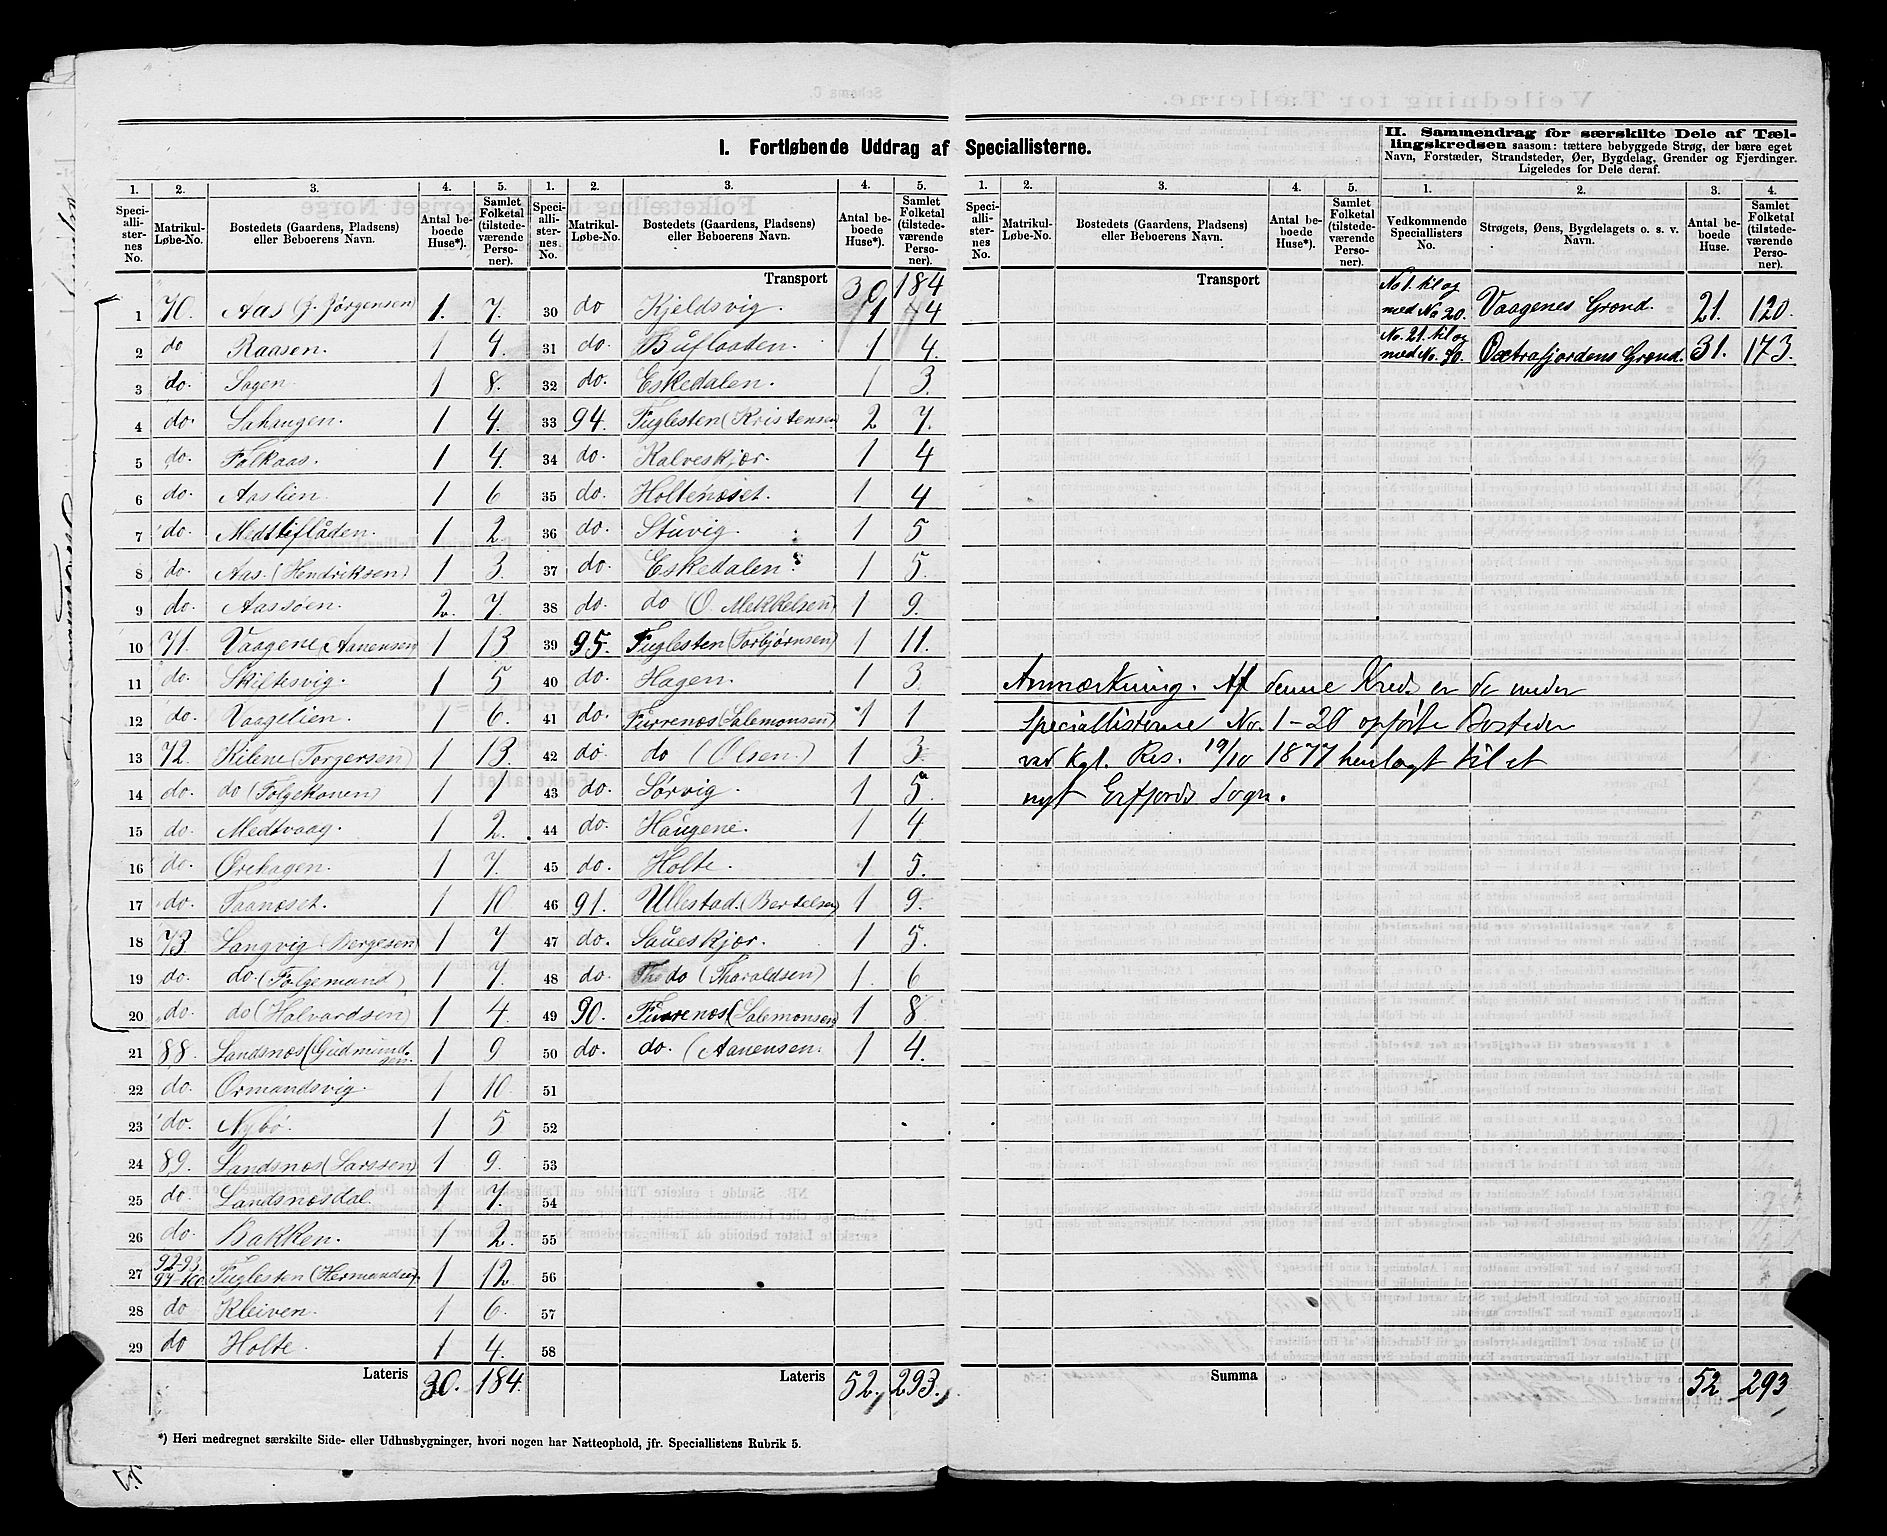 I. Fortløbende Uddrag af Speciallisterne.
II. Sammendrag for særskilte Dele af Tæl-
lingskredsen saasom: tættere bebyggede Strøg, der bære eget
Navn, Forstæder, Strandsteder, Øer, Bygdelag, Grender og Fjerdinger.
Ligeledes for Dele deraf.
1. 2. 3. 4. 5. 1. 2. 3. 4. 5. 1. 2. 3. 4. 5. 1. 2. 3. 4.
Speciallisternes No. Matrikul-Løbe-No. Bostedets (Gaardens, Pladsens) eller Beboerens Navn. Antal beboede Huse*). Samlet Folketal (tilstedeværende Personer).
Speciallisternes No. Matrikul-Løbe-No. Bostedets (Gaardens, Pladsens) eller Beboerens Navn. Antal beboede Huse*). Samlet Folketal (tilstedeværende Personer).
Speciallisternes No. Matrikul-Løbe-No. Bostedets (Gaardens, Pladsens) eller Beboerens Navn. Antal beboede Huse*). Samlet Folketal (tilstedeværende Personer).
Vedkommende Speciallisters No. Strøgets, Øens, Bygdelagets o. s. v. Navn. Antal beboede Huse. Samlet Folketal (tilstedeværende Personer).
1 70. Aas (J. Jørgensen 1. 7.
2 do Raasen. 1 4.
3 do. Sagen. 1 8.
4 do. Sahaugen. 1 4.
5 do. Falkaas. 1 4.
6 do. Aaslien. 1 6
7 do. Medtliflåden. 1 2.
8 do. Aas. (Hendriksen) 1 3.
9 do. Aassøen. 2. 7.
10 71. Vaagene (Aanensen 1 13
11 do. Skiftesvig. 1 5
12 do. Vaagelien. 1 6.
13 72. Kilene (Torgersen) 1 13.
14 do. do (Folgekonen) 1 1
15 do. Medtvaag. 1 2.
16 do. Ørehagen. 1 7.
17 do. Taanæset. 1 10
18 73. Langvig (Bergesen) 1 7
19 do. do. (Folgemand) 1 7.
20 do. do (Halvardsen) 1 4.
21 88. Landsnæs (Gudmundsen. 1 9
22 do. Ormandsvig. 1 10.
23 do. Nybø. 1 5
24 89. Landsnæs (Larssen) 1 9.
25 do. Landsnæsdal. 1 7.
26 do. Bakken. 1 2.
27 92-93. 97-100. Fuglesten (Hermandsen 1 12
28 do Kleiven. 1 6.
29 do Holte. 1 4.
Lateris 30. 184.
Transport 30 184
30 do Kjeldsvig. 1 4
31 do. Buflaaden. 1 4.
32 do. Eskedalen. 1 3.
33 94. Fuglesten (Kristensen) 2 7.
34 do. Kalveskjær. 1 4
35 do. Holtenæset. 1 4
36 do. Stuvig. 1 5
37 do. Eskedalen. 1 5.
38 do. do (O. Mekkelsen) 1 9.
39 95. Fuglesten (Torbjørnsen) 1 11.
40 do. Hagen. 1 3.
41 do. Furrenæs (Salemonsen) 1 1
42 do do (Olsen.) 1 3.
43 do. Sørvig. 1 5.
44 do. Haugene. 1 4
45 do. Holte. 1 5.
46 91. Ullestad. (Bertelsen) 1 9.
47 do. Saueskjær. 1 5.
48 do. do (Tharaldsen) 1. 6
49 90. Furrenæs (Salemonsen) 1 8.
50 do. do. (Aanensen. 1 4.
51
52
53
54
55
56
57
58
Lateris 52. 293.
Transport
No 1. til og med No 20. Vaagenes Grend. 21. 120.
No. 21. til og med No. 50. Øxtrafjordens Grend. 31. 173.
Anmærkning. Af denne Kreds er de under
Speciallisterne No. 1-20 opførte Bosteder
ved Kgl. Res. 19/10 1877 henlagt til et
nyt Erfjords Sogn.
Summa 52 293
*) Heri medregnet særskilte Side- eller Udhusbygninger, hvori nogen har Natteophold, jfr. Speciallistens Rubrik 5.